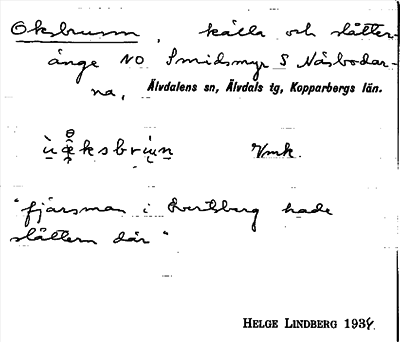 Oksbrunn, källa och slåtter-
änge NO Smidsmyr S Näsbodar-
na,
Älvdalens sn, Älvdals tg, Kopparbergs län.
Vmk.
"fjärsman i Evertsberg hade
slåttern där"
HELGE LINDBERG 1934.